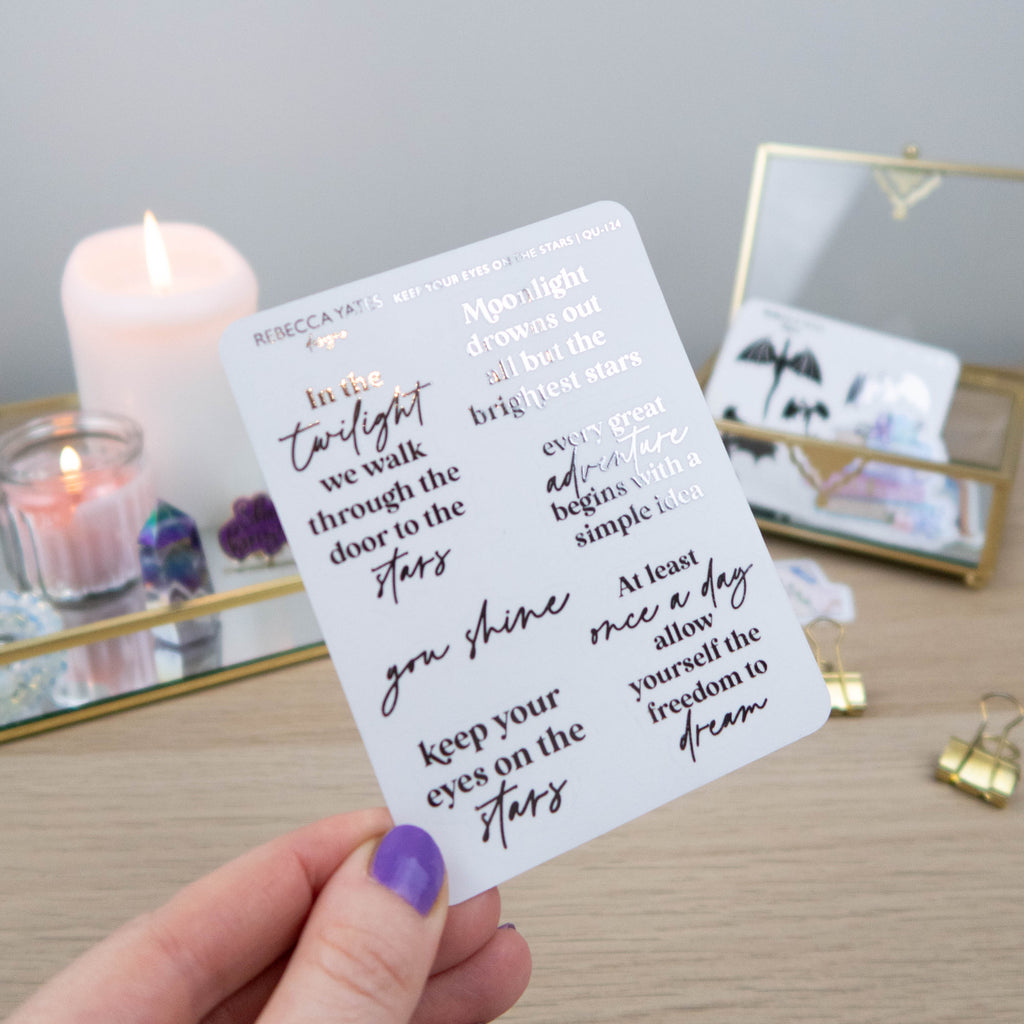 REBECCA YATES KEEP YOUR EYES ON THE STARS | QU-124
design
In the
twilight
we walk
through the
door to the
stars
Moonlight
drowns out
all but the
brightest stars
every great
adventure
begins with a
simple idea
you shine
At least
once a day
allow
yourself the
freedom to
dream
keep your
eyes on the
stars